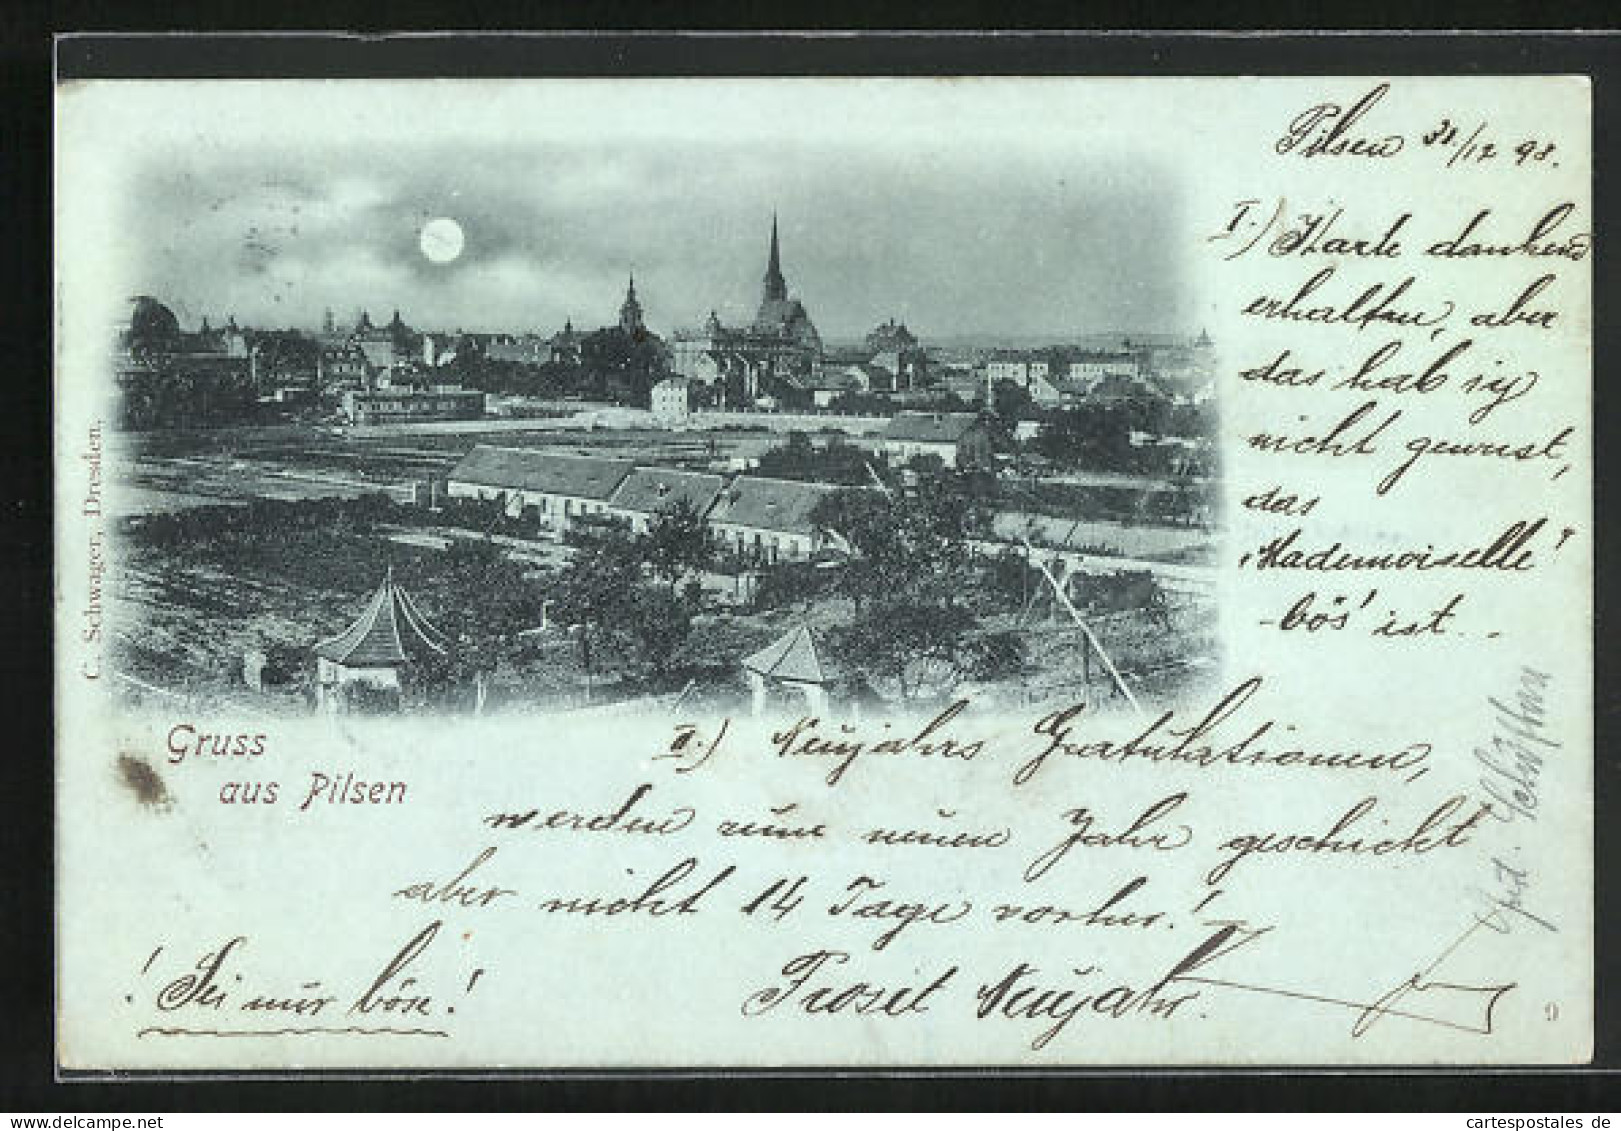 Pilsen 31/12 98.
I.) Karte dankend
erhalten, aber
das hab ich
nicht gewusst,
das
Mademoiselle!
bös! ist..
C. Schwager, Dresden.
Gruss
aus Pilsen
II.) Neujahrs Gratulationen,
werden zum neuen Jahr geschickt
aber nicht 14 Tage vorher!
! Sei nur böse!
Prosit Neujahr.
9
cartespostales de